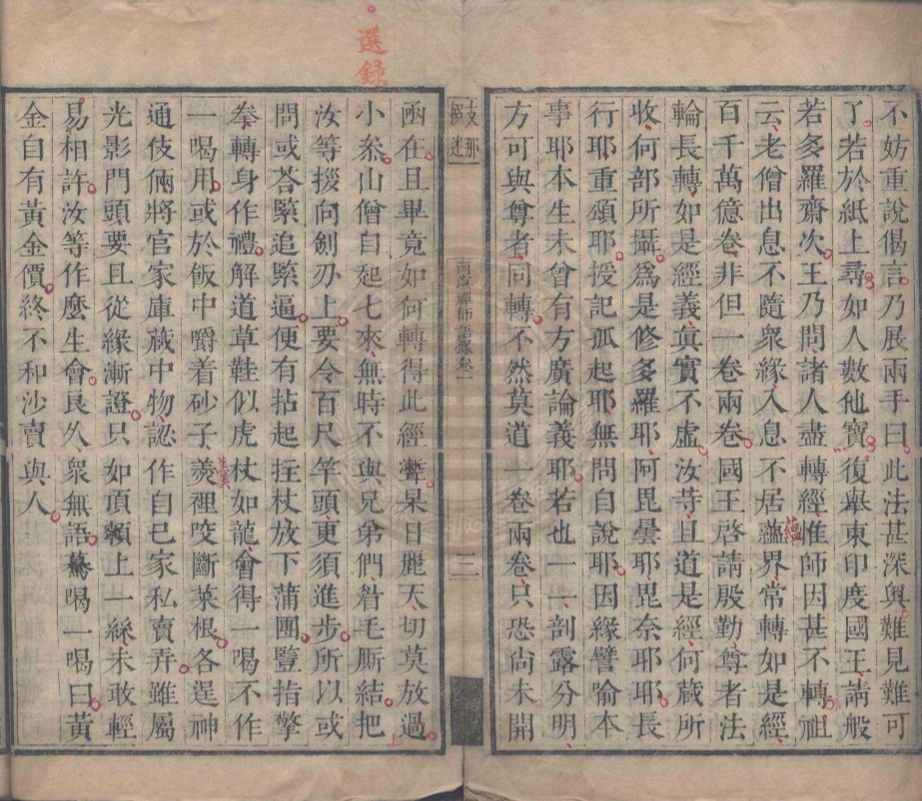 不妨重說偈言乃展兩手曰此法甚深奧難見難可
了若於紙上尋如人數他寶復舉東印度國王請般
若多羅齋次王乃問諸人盡轉經惟師因甚不轉祖
云老僧出息不隨衆緣入息不居蘊界常轉如是經
蘊
百千萬億卷非但一卷兩卷國王啓請殷勤尊者法
輪長轉如是經義眞實不虛汝等且道是經何藏所
收何部所攝爲是修多羅耶阿毘曇耶毘奈耶耶長
行耶重頌耶授記孤起耶無問自說耶因緣譬喻本
事耶本生未曾有方廣論義耶若也一一剖露分明
方可與尊者同轉不然莫道一卷兩卷只恐尚未開
支那
撰述
禪師語錄卷一
三
選錄
函在且畢竟如何轉得此經聻杲日麗天切莫放過
小叅山僧自起七來無時不與兄弟們眉毛厮結把
汝等拶向劍刃上要令百尺竿頭更須進步所以或
問或荅緊追緊逼便有拈起拄杖放下蒲團豎指擎
拳轉身作禮解道草鞋似虎杖如龍會得一喝不作
一喝用或於飯中嚼着砂子羮裡咬斷菜根各逞神
通伎倆將官家庫藏中物認作自已家私賣弄雖屬
光影門頭要且從緣漸證只如頂𩕳上一絲未敢輕
易相許汝等作麽生會良久衆無語驀喝一喝曰黃
金自有黃金價終不和沙賣與人